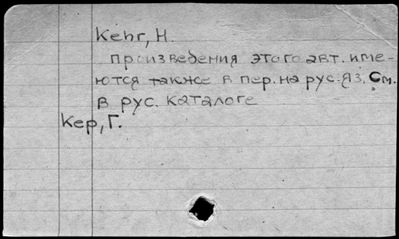 Kehr, H.
произведения этого авт. име-
ются также в пер. на рус. яз. См.
в рус. каталоге
Кер, Г.